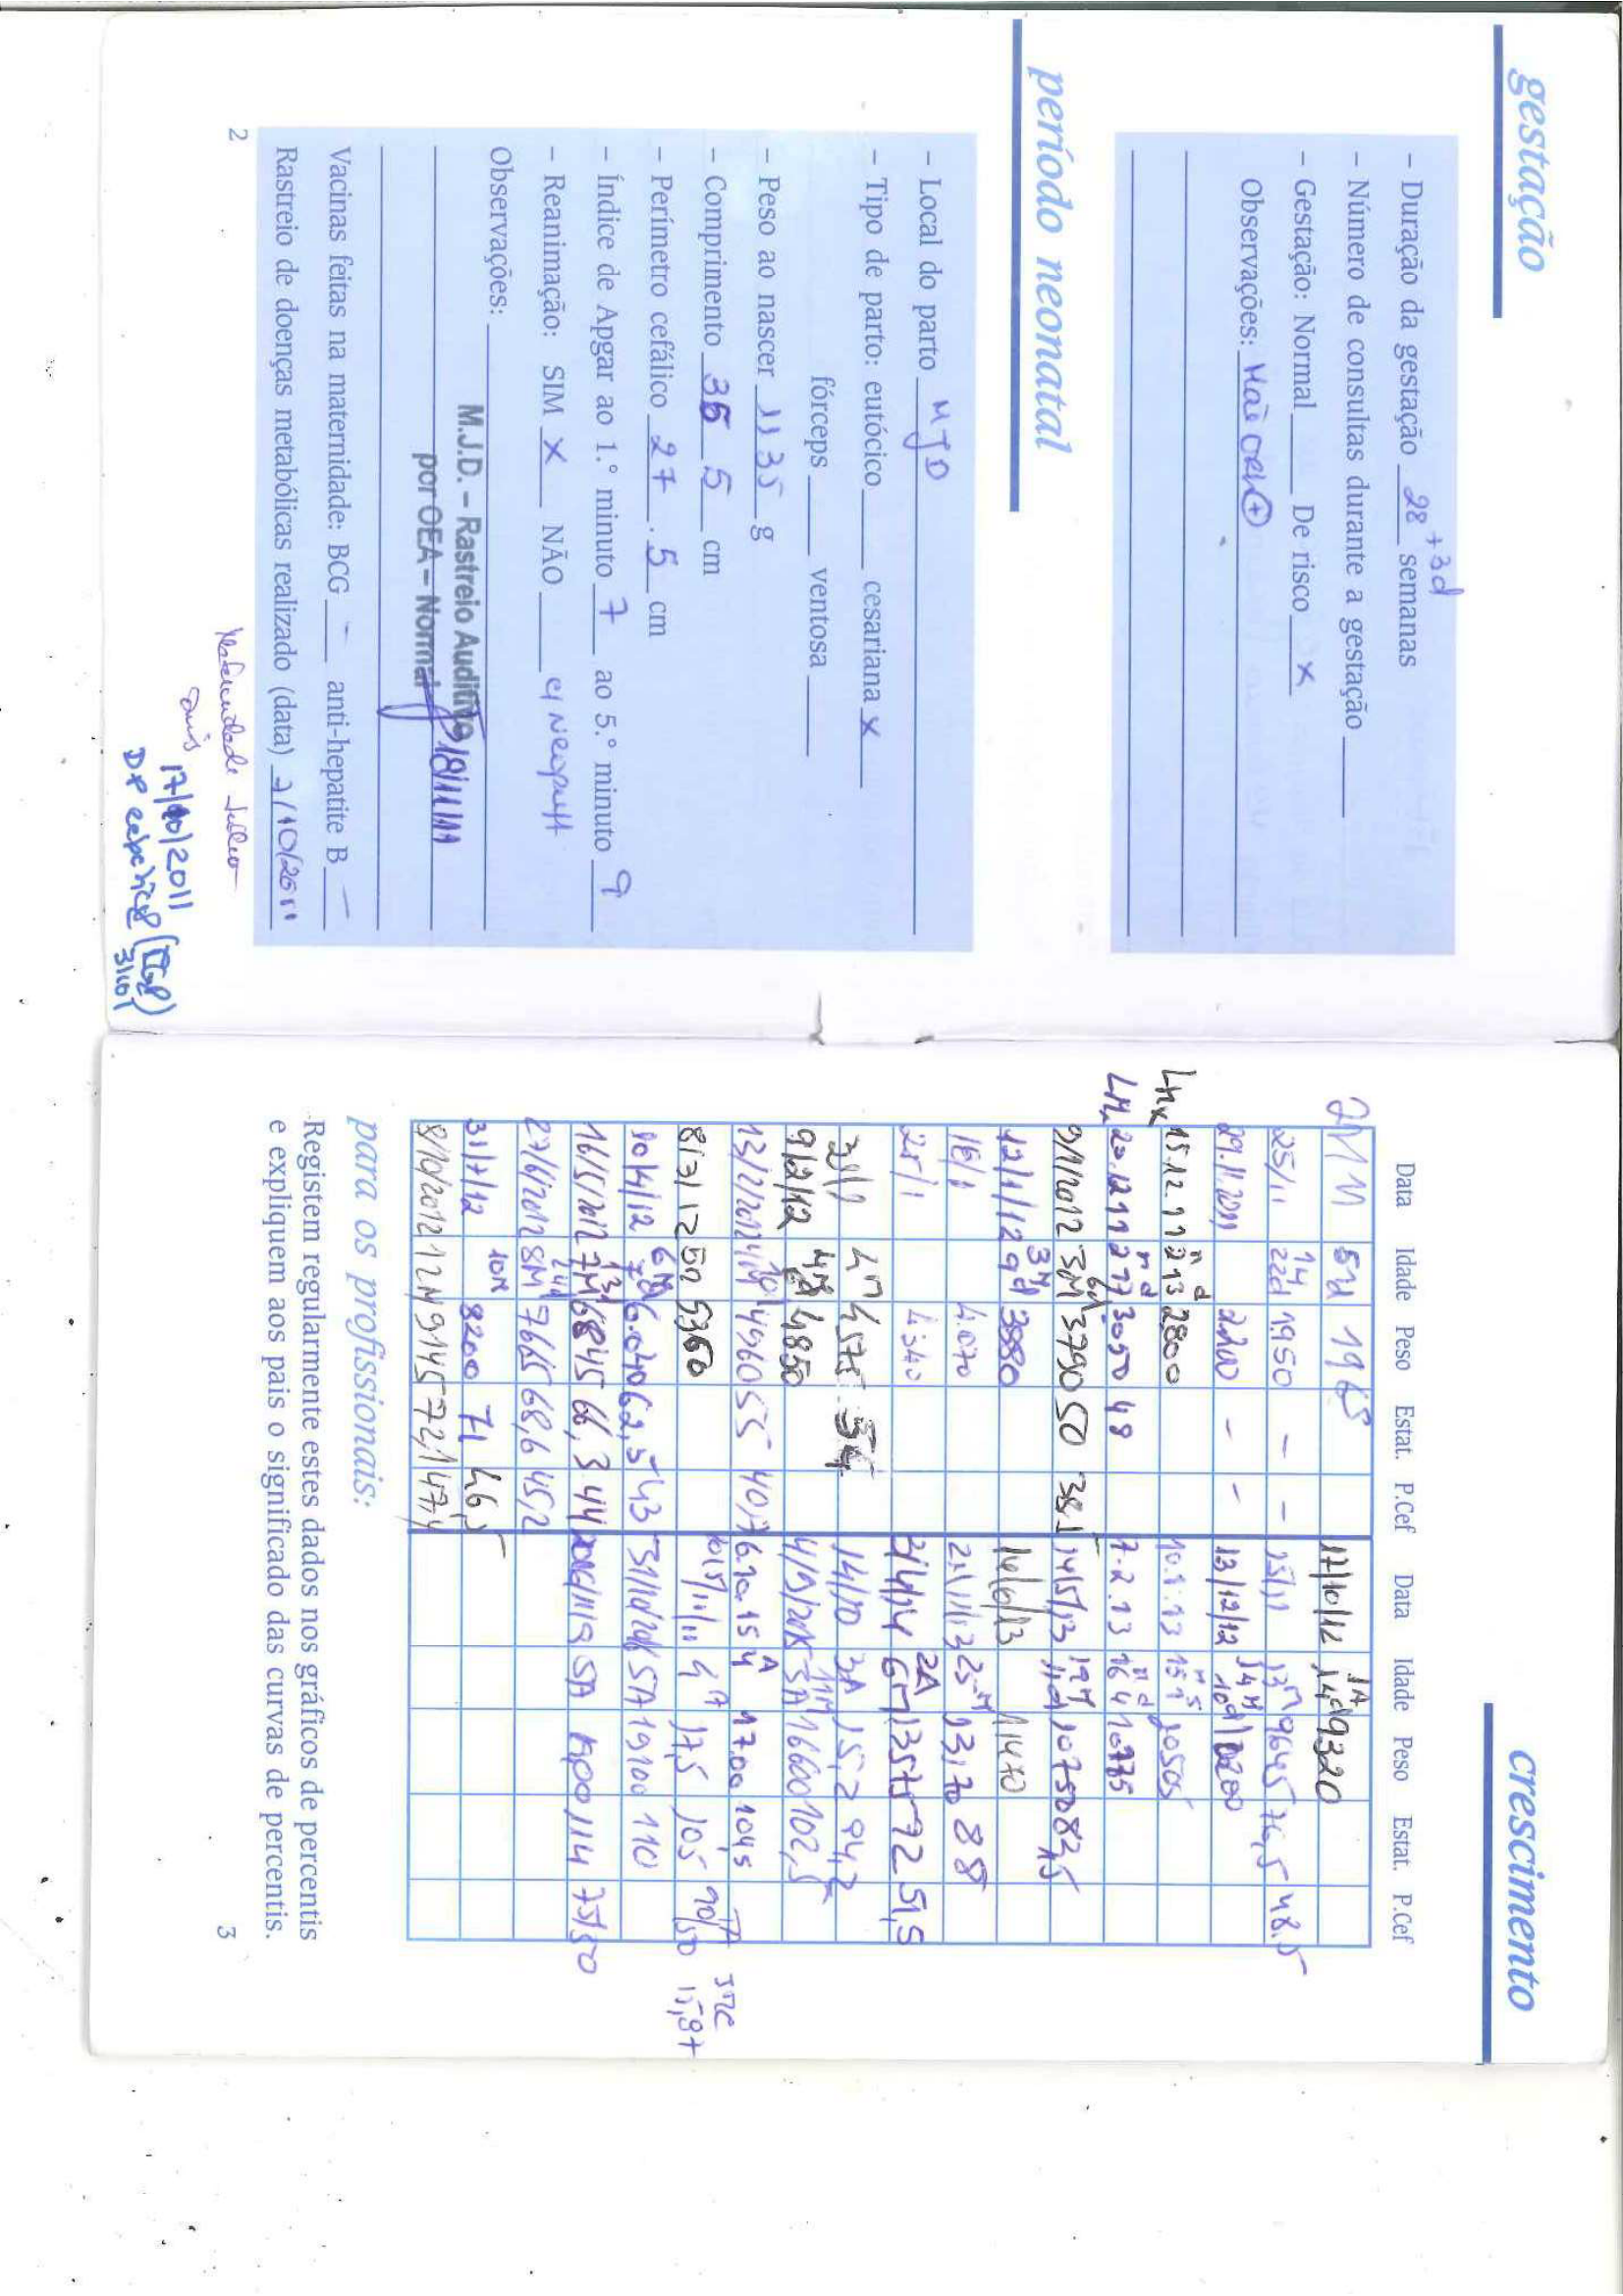 gestação
– Duração da gestação 28 +3d semanas
– Número de consultas durante a gestação
– Gestação: Normal De risco x
Observações: Mãe
período neonatal
– Local do parto MJD
– Tipo de parto: eutócico cesariana x
fórceps ventosa
– Peso ao nascer 1135 g
– Comprimento 36 5 cm
– Perímetro cefálico 27 . 5 cm
– Índice de Apgar ao 1.º minuto 7 ao 5.º minuto 9
– Reanimação: SIM x NÃO c/ Neopuff
Observações:
M.J.D. – Rastreio Auditivo 18/11/11
por OEA – Normal
Vacinas feitas na maternidade: BCG – anti-hepatite B –
Rastreio de doenças metabólicas realizado (data) 7/10/2011
2
Maternidade Júlio
Dinis
17/10/2011
crescimento
Data Idade Peso Estat. P.Cef Data Idade Peso Estat. P.Cef
17/10/12 1A 14d 9320
25/11 22d 1950 – – 13M 9645 76,5 48.5
29.11.2011 2200 – – 13/12/12 14M 10d 10200
15.12.11 2M 13d 2800 10.1.13 15M
20.12.11 2M 17d 3050 48 7.2.13 16M 4d 10775
9/1/2012 3M 6d 3790 50 38,5 14/5/13 19M 11d 10750 82,5
12/1/12 3M 9d 3880 14/6/13 11470
16/1 4.070 21/11/13 25M 13,70 88
25/1 4.340 2/4/14 2A 6M 13575 92 51,5
2/2 4M 4575 54 14/10 3A 15,2 94,2
9/2/12 4M 4850 3A 11M 16600 102,5
13/2/2012 4M 4960 55 40,7 6.10.15 4A 17.00 104,5
8/3/12 5M 5360 4A 17,5 105 90/50
TA IMC 15,87
10/4/12 6M 6.040 62,5 43 5A 19100 110
16/5/2012 7M 13d 6845 66,3 44 5A 114 75/50
27/6/2012 8M 24d 7665 68,6 45,2
31/7/12 10M 8200 71 46,5
8/10/2012 12M 9145 72,1 47,4
para os profissionais:
Registem regularmente estes dados nos gráficos de percentis
e expliquem aos pais o significado das curvas de percentis.
3